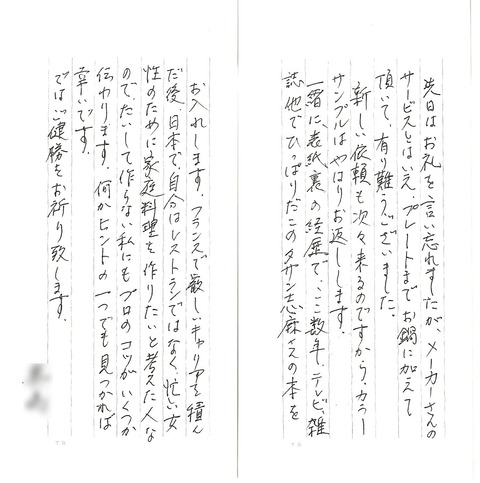 先日はお礼を言い忘れましたが、メーカーさんの
サービスとはいえ、プレートまでお鍋に加えて
頂いて、有り難うございました。
新しい依頼も次々来るのですから、カラー
サンプルはやはりお返しします。
一緒に、表紙裏の経歴で、ここ数年、テレビ、雑
誌他でひっぱりだこのタサン志麻さんの本を
お入れします。フランスで厳しいキャリアを積ん
だ後、日本で、自分はレストランではなく、忙しい女
性のために家庭料理を作りたいと考えた人な
ので、たいして作らない私にもプロのコツがいくつか
伝わります。何かヒントの一つでも見つかれば
幸いです。
ではご健勝をお祈り致します。